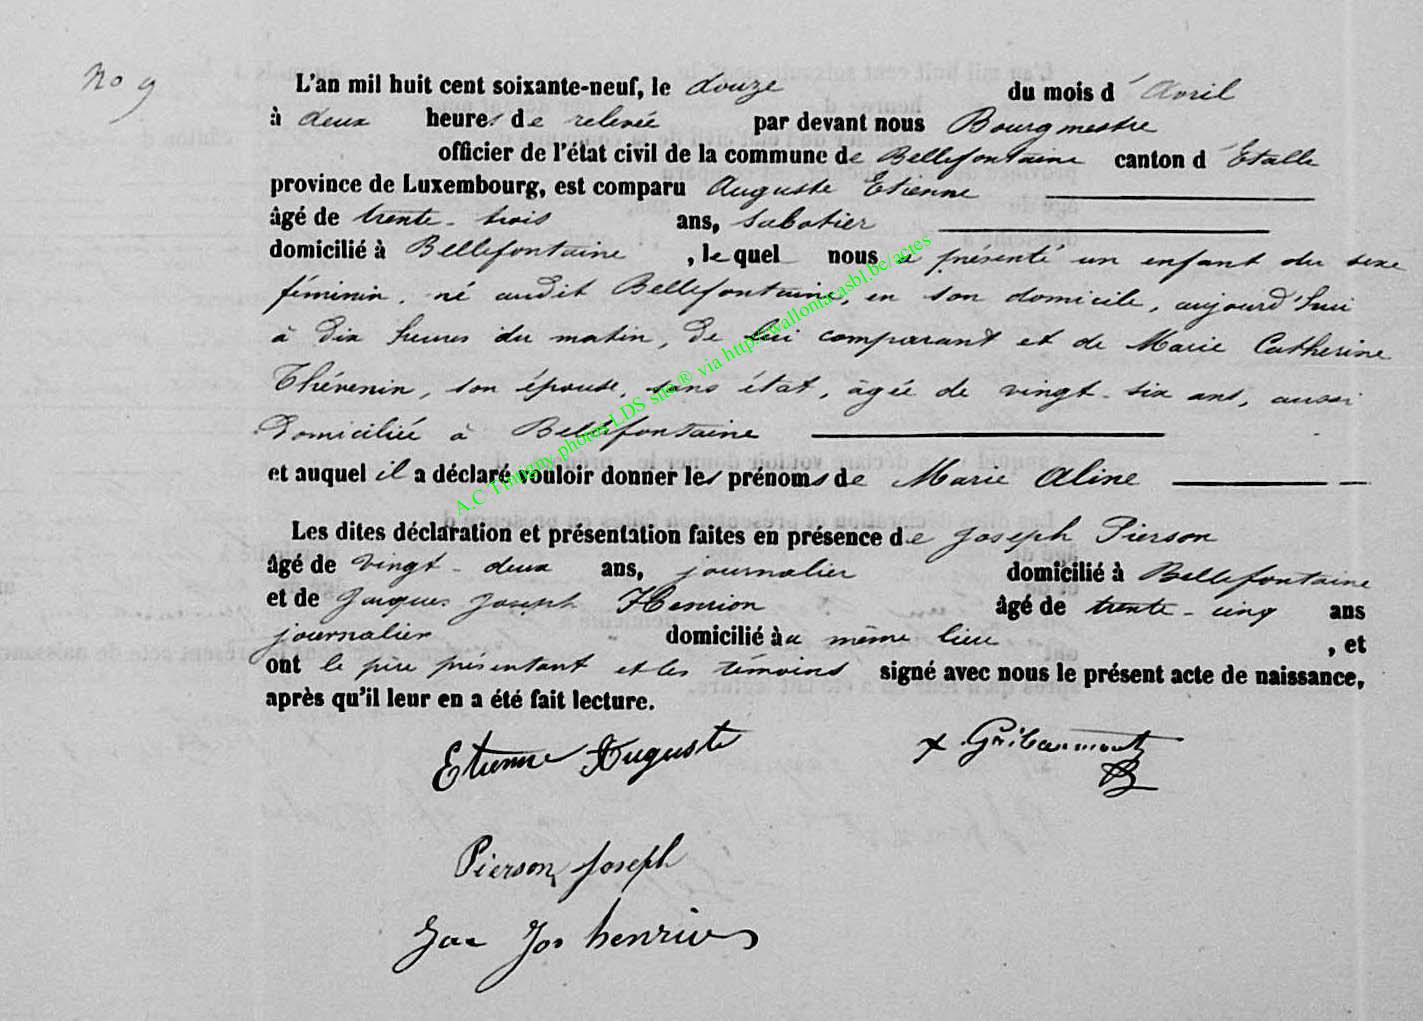 No 9
L'an mil huit cent soixante-neuf, le douze du mois d'Avril
à deux heures de relevée par devant nous Bourgmestre
officier de l'état civil de la commune de Bellefontaine canton d'Etalle
province de Luxembourg, est comparu Auguste Etienne
âgé de trente-trois ans, sabotier
domicilié à Bellefontaine, lequel nous a présenté un enfant du sexe
féminin, né audit Bellefontaine, en son domicile, aujourd'hui
à dix heures du matin, de lui comparant et de Marie Catherine
Thévenin, son épouse, sans état, âgée de vingt-six ans, aussi
domiciliée à Bellefontaine
et auquel il a déclaré vouloir donner les prénoms de Marie Aline
Les dites déclaration et présentation faites en présence de Joseph Pierson
âgé de vingt-deux ans, journalier domicilié à Bellefontaine
et de Jacques Joseph Henrion âgé de trente-cinq ans
journalier domicilié au même lieu, et
ont le père présentant et les témoins signé avec nous le présent acte de naissance,
après qu'il leur en a été fait lecture.
Etienne Auguste
Pierson Joseph
Jac Jos henrion
A.C Tintigny photos LDS site® via http://wallonia.casbl.be/actes